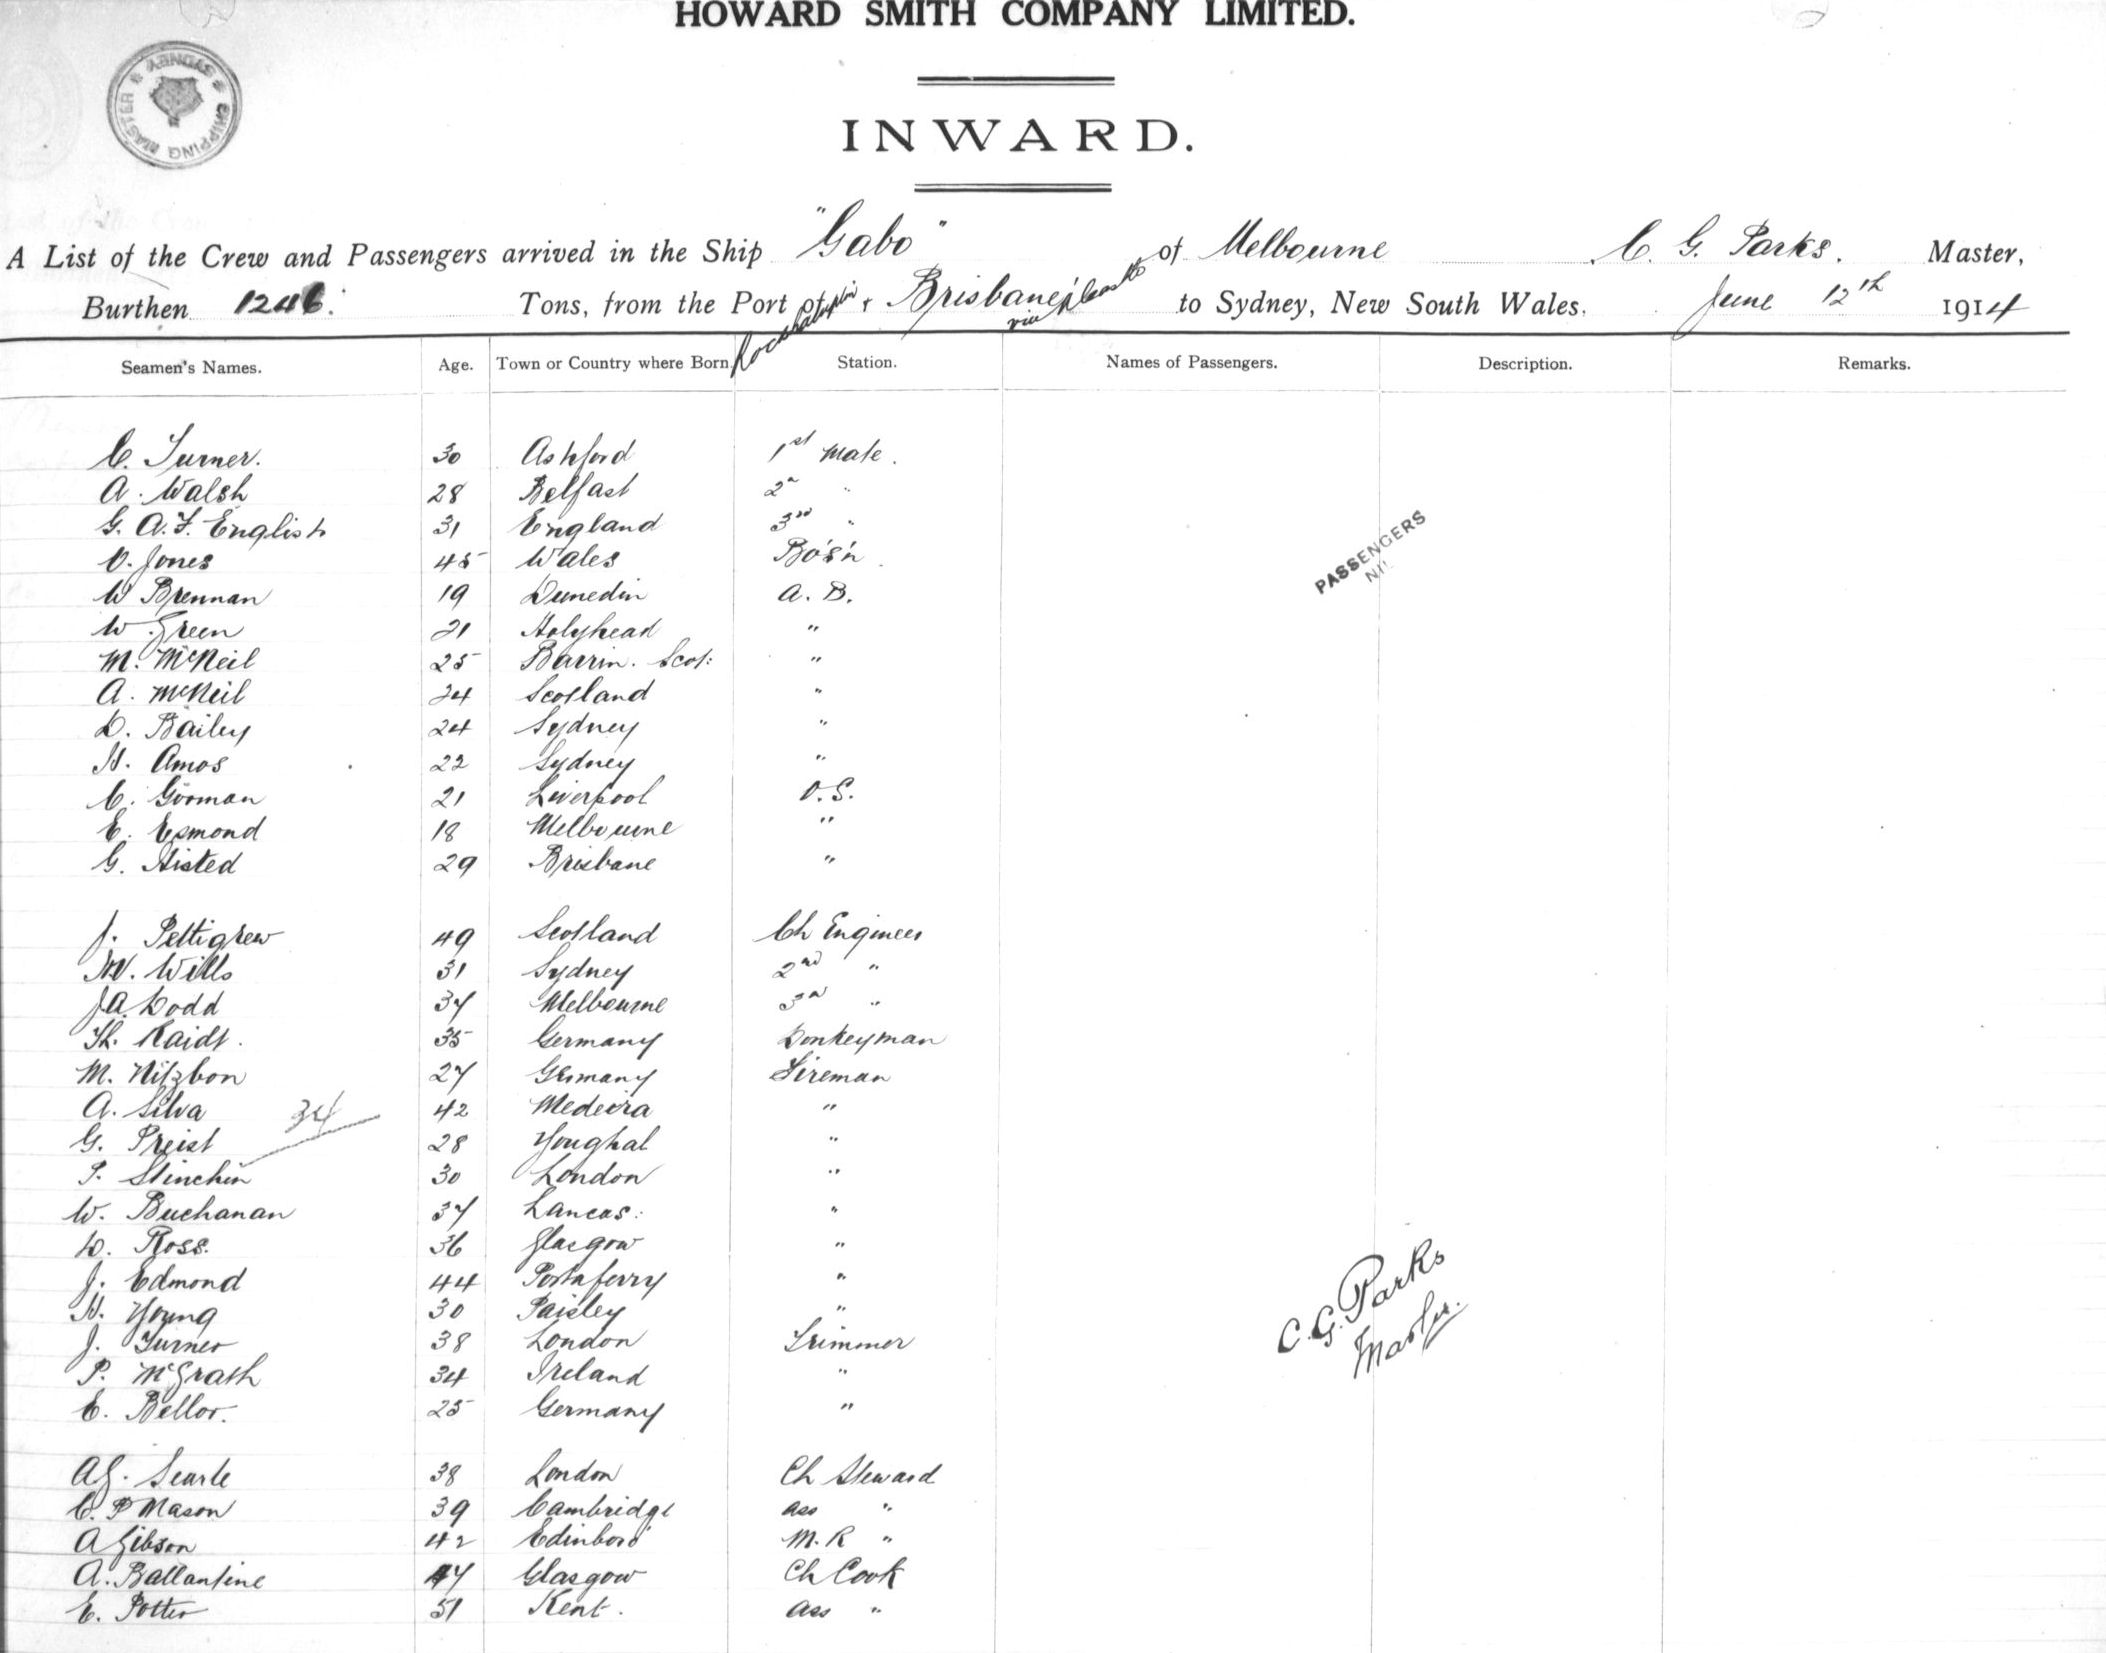 HOWARD SMITH COMPANY LIMITED.
SHIPPING MASTER SYDNEY
INWARD.
A List of the Crew and Passengers arrived in the Ship "Gabo" of Melbourne C. G. Parks. Master,
Burthen 1246. Tons, from the Port of + Brisbane via to Sydney, New South Wales. June 12th 1914
Seamen's Names. Age. Town or Country where Born. Station. Names of Passengers. Description. Remarks.
C. Turner. 30 Ashford 1st Mate.
A. Walsh 28 Belfast 2n "
G. A. F. English 31 England 3rd "
O. Jones 45 Wales Bo's'n.
PASSENGERS
NIL
W Brennan 19 Dunedin A. B.
W. Green 21 Holyhead "
M. McNeil 25 Barrin. Scot: "
A. McNeil 24 Scotland "
D. Bailey 24 Sydney "
H. Amos 22 Sydney "
C. Gorman 21 Liverpool O. S.
E. Esmond 18 Melbourne "
G. Aisted 29 Brisbane "
J. Pettigrew 49 Scotland Ch Engineer
W. Wills 31 Sydney 2nd "
J A. Dodd 37 Melbourne 3rd "
Th. Kaidt. 35 Germany Donkeyman
M. Nitzbon 27 Germany Fireman
A. Silva 34 42 Medeira "
G. Preist 28 Youghal "
P. Stinchin 30 London "
W. Buchanan 37 Lancas: "
D. Ross. 36 Glasgow "
J. Edmond 44 Portaferry "
H. Young 30 Paisley "
J. Turner 38 London Trimmer
C. G. Parks
Master.
P. McGrath 34 Ireland "
E. Bellor. 25 Germany "
A G. Searle 38 London Ch Steward
C. P Mason 39 Cambridge ass "
A Gibson 42 Edinboro' M. R "
A. Ballantine 47 Glasgow Ch Cook
E. Potter 51 Kent. ass "